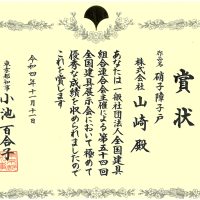 賞状
作品名 硝子障子戸
株式会社 山崎殿
あなたは一般社団法人全国建具
組合連合会主催による第五十四回
全国建具展示会において極めて
優秀な成績を収められましたので
これを賞します
令和四年十一月十一日
東京都知事 小池百合子